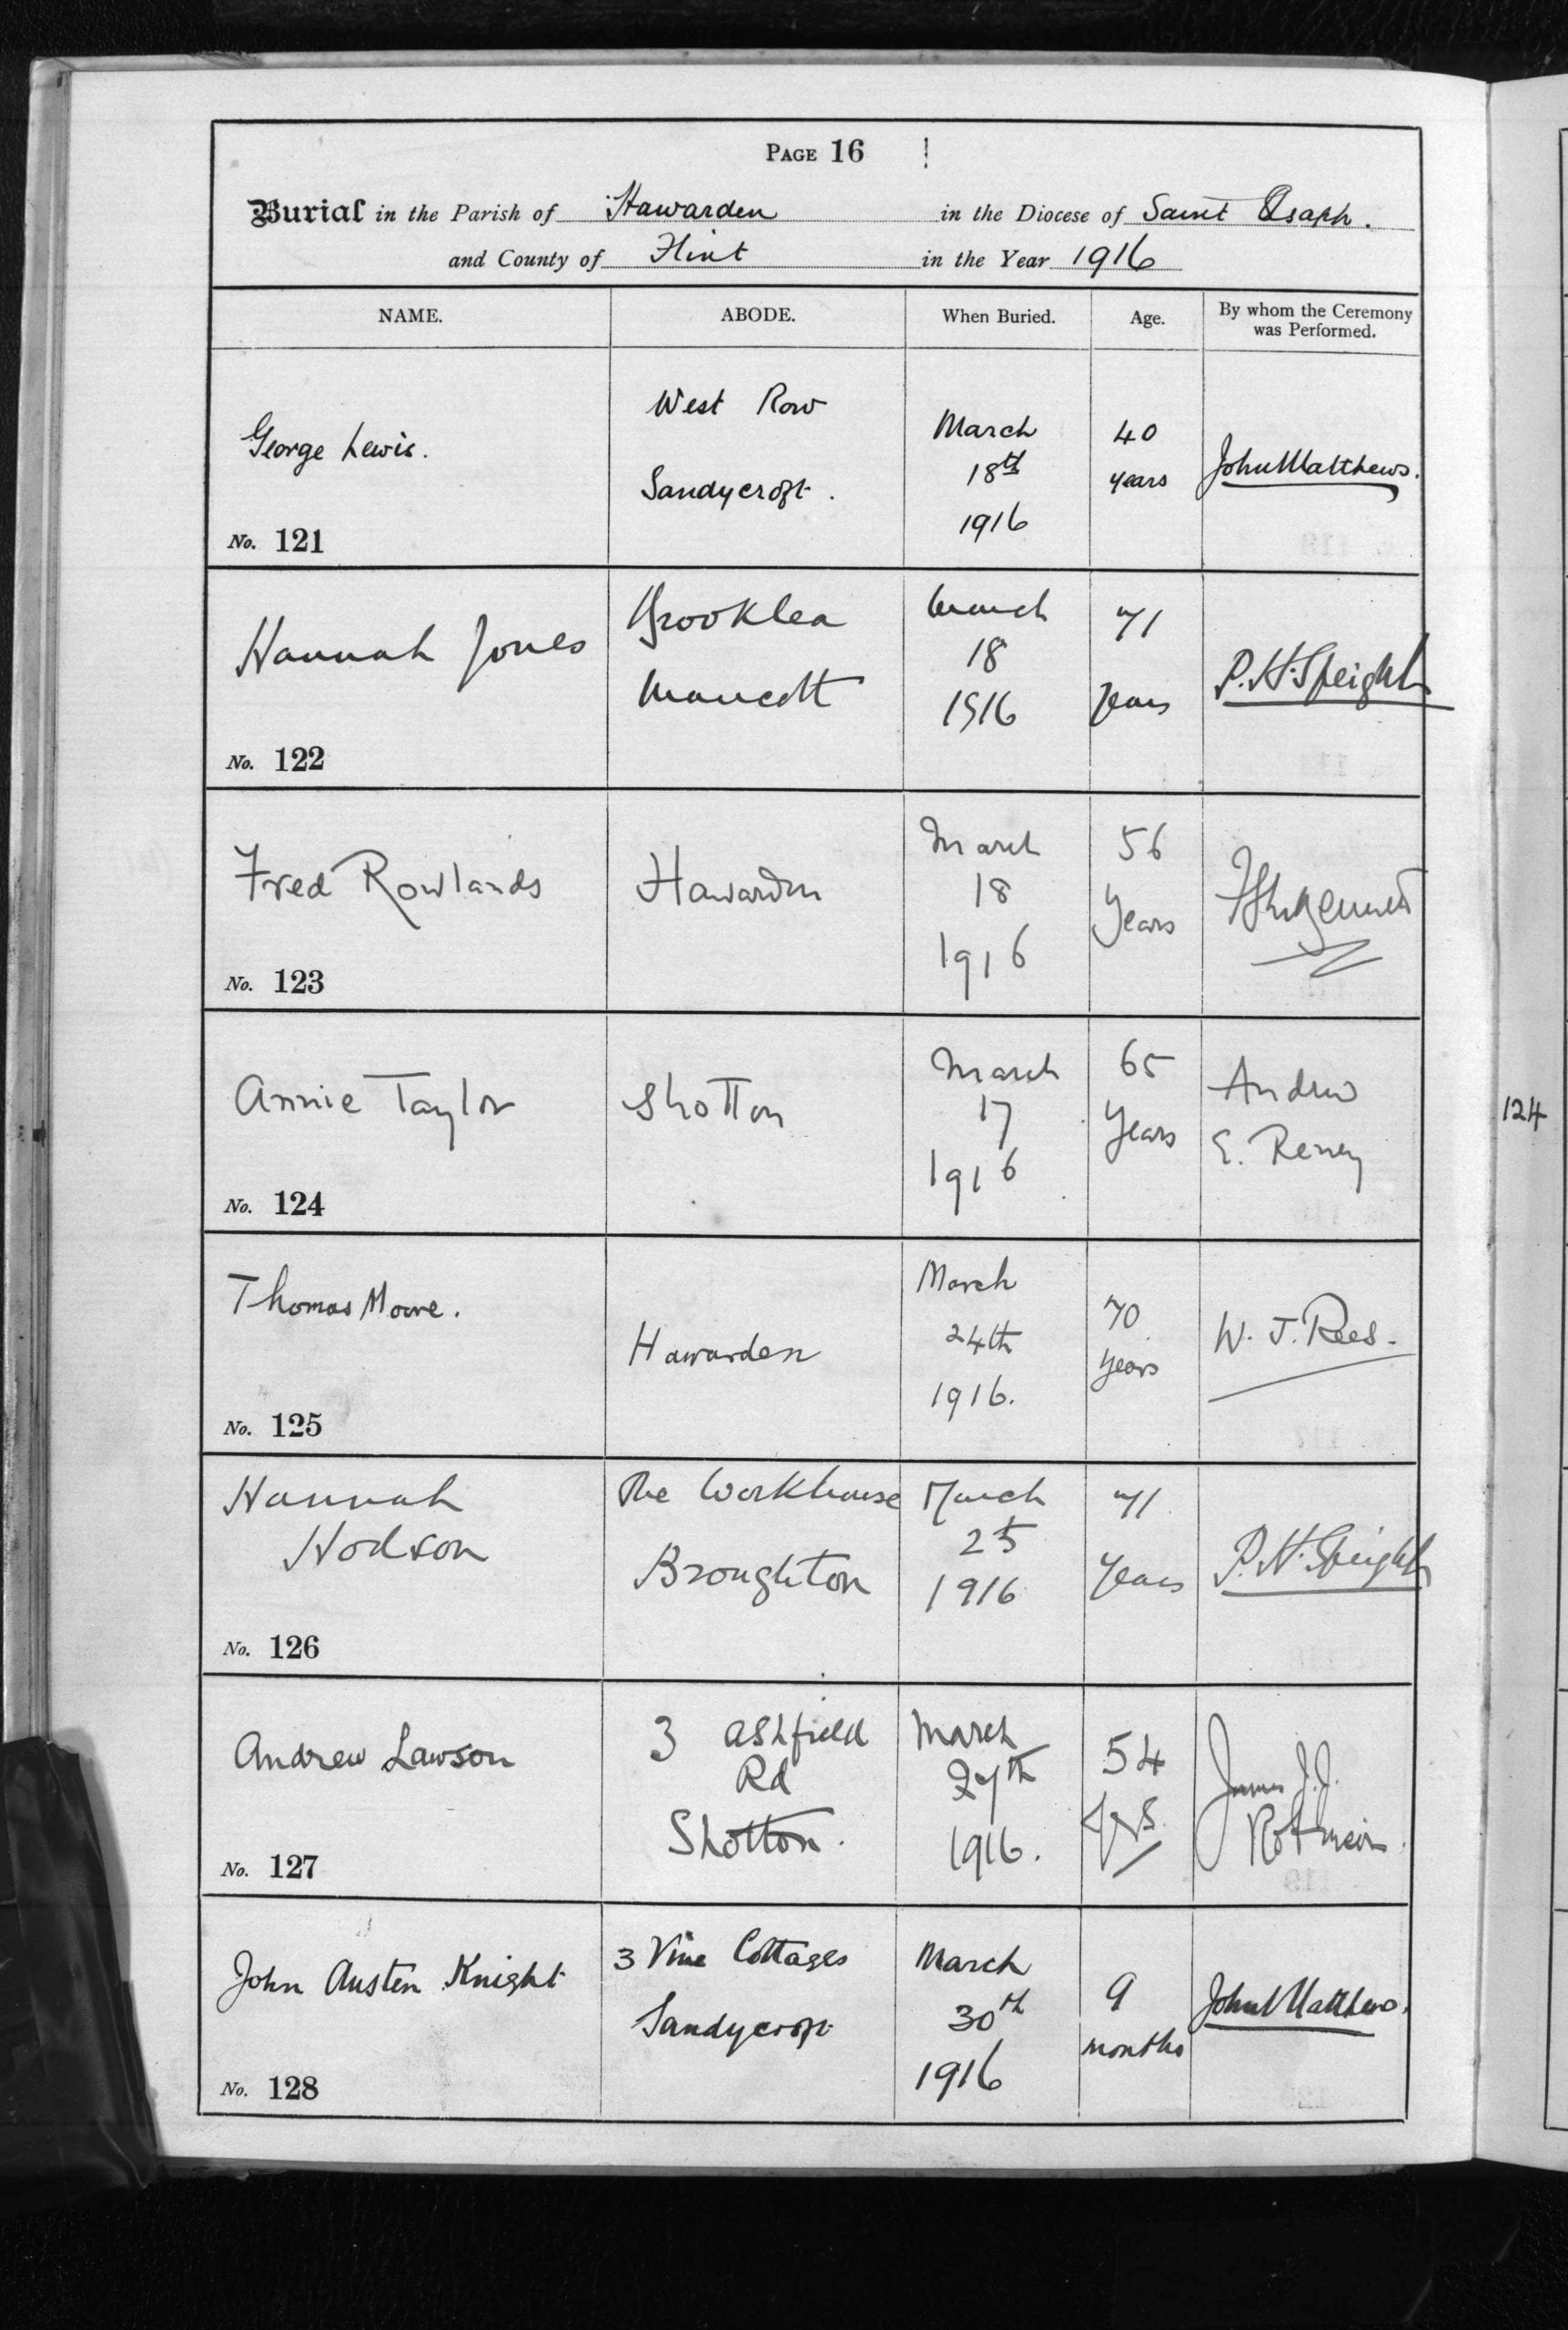 PAGE 16
Burial in the Parish of Hawarden in the Diocese of Saint Asaph.
and County of Flint in the Year 1916
NAME. ABODE. When Buried. Age. By whom the Ceremony was Performed.
George Lewis.
West Row
Sandycroft.
March
18th
1916
40
years
John Matthews.
No. 121
Hannah Jones
Brooklea
Mancott
March
18
1916
71
years
P. H. Speight
No. 122
Fred Rowlands
Hawarden
March
18
1916
56
Years
No. 123
Annie Taylor
Shotton
March
17
1916
65
Years
Andrew
E. Reney
No. 124
124
Thomas Moore.
Hawarden
March
24th
1916.
70
years
W. J. Rees.
No. 125
Hannah
Hodson
The Workhouse
Broughton
March
25
1916
71
years
P. H. Speight
No. 126
Andrew Lawson
3 Ashfield
Rd
Shotton.
March
27th
1916.
54
yrs.
James J. J.
No. 127
John Austen Knight
3 Vine Cottages
Sandycroft
March
30th
1916
9
months
John Matthews.
No. 128